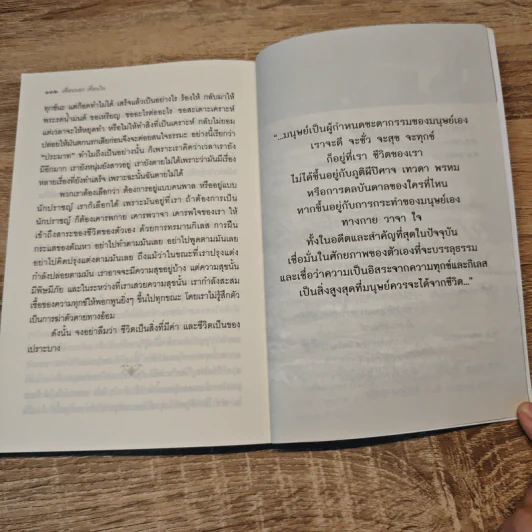 ๑๑๒ เตือนนอก เตือนใน
ทุกข์นะ แต่ก็อดทำไม่ได้ เสร็จแล้วเป็นอย่างไร ร้องไห้ กลับมาให้
พระรดน้ำมนต์ ขอเหรียญ ขออะไรต่ออะไร ขอสะเดาะเคราะห์
แต่เวลาจะให้หยุดทำ หรือไม่ให้ทำสิ่งที่เป็นเคราะห์ กลับไม่ยอม
ปล่อยให้มันตกนรกเสียก่อนจึงจะค่อยสนใจธรรมะ อย่างนี้เรียกว่า
"ประมาท" ทำไมถึงเป็นอย่างนั้น ก็เพราะเราคิดว่าเวลาเรายัง
มีอีกมาก เรายังหนุ่มยังสาวอยู่ เรายังตายไม่ได้เพราะว่ามันมีเรื่อง
หลายเรื่องที่ยังทำเสร็จ เพราะฉะนั้นฉันตายไม่ได้
พวกเราต้องเลือกว่า ต้องการอยู่แบบคนพาล หรืออยู่แบบ
นักปราชญ์ เราก็เลือกได้ เพราะมันอยู่ที่เรา ถ้าต้องการเป็น
นักปราชญ์ ก็ต้องเคารพกาย เคารพวาจา เคารพใจของเรา ให้
เข้าถึงสาระของชีวิตของตัวเอง ด้วยการทรมานกิเลส การฝืน
กระแสของตัณหา อย่าไปทำตามมันเลย อย่าไปพูดตามมันเลย
อย่าไปคิดปรุงแต่งตามมันเลย ถึงแม้ว่าในขณะที่เราปรุงแต่ง
กำลังปล่อยตามมัน เราอาจจะมีความสุขอยู่บ้าง แต่ความสุขนั้น
มีพิษมีภัย และในระหว่างที่เราเสวยความสุขนั้น เรากำลังสะสม
เชื้อของความทุกข์ให้พอกพูนยิ่งๆ ขึ้นไปทุกขณะ โดยเราไม่รู้สึกตัว
เป็นการฆ่าตัวตายทางอ้อม
ดังนั้น จงอย่าลืมว่า ชีวิตเป็นสิ่งที่มีค่า และชีวิตเป็นของ
เปราะบาง
"...มนุษย์เป็นผู้กำหนดชะตากรรมของมนุษย์เอง
เราจะดี จะชั่ว จะสุข จะทุกข์
ก็อยู่ที่เรา ชีวิตของเรา
ไม่ได้ขึ้นอยู่กับภูติผีปิศาจ เทวดา พรหม
หรือการดลบันดาลของใครที่ไหน
หากขึ้นอยู่กับการกระทำของมนุษย์เอง
ทางกาย วาจา ใจ
ทั้งในอดีตและสำคัญที่สุดในปัจจุบัน
เชื่อมั่นในศักยภาพของตัวเองที่จะบรรลุธรรม
และเชื่อว่าความเป็นอิสระจากความทุกข์และกิเลส
เป็นสิ่งสูงสุดที่มนุษย์ควรจะได้จากชีวิต..."